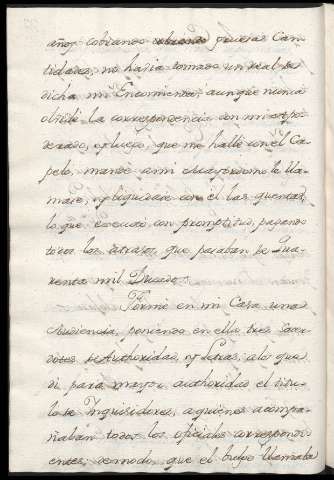 años cobrando cobrando gruesas Can-
tidades, no havia tomado un real de
dicha mi Encomienda, aunque nunca
olvidé la correspondencia con mi Apo-
derado, y luego, que me hallé con el Ca-
pelo, mandé a mi Maiordomo le lla-
mase, y liquidase con él las quentas,
lo que executó con promptitud, pagando
todos los atrasos, que pasaban de Qua-
renta mil Ducados.
Formé en mi Casa una
Audiencia, poniendo en ella tres Sacer-
dotes de Authoridad, y Letras, a los que
di para mayor authoridad el titu-
lo de Inquisidores, a quienes acompa-
ñaban todos los oficiales correspondi-
entes, de modo, que el bulgo llamaba